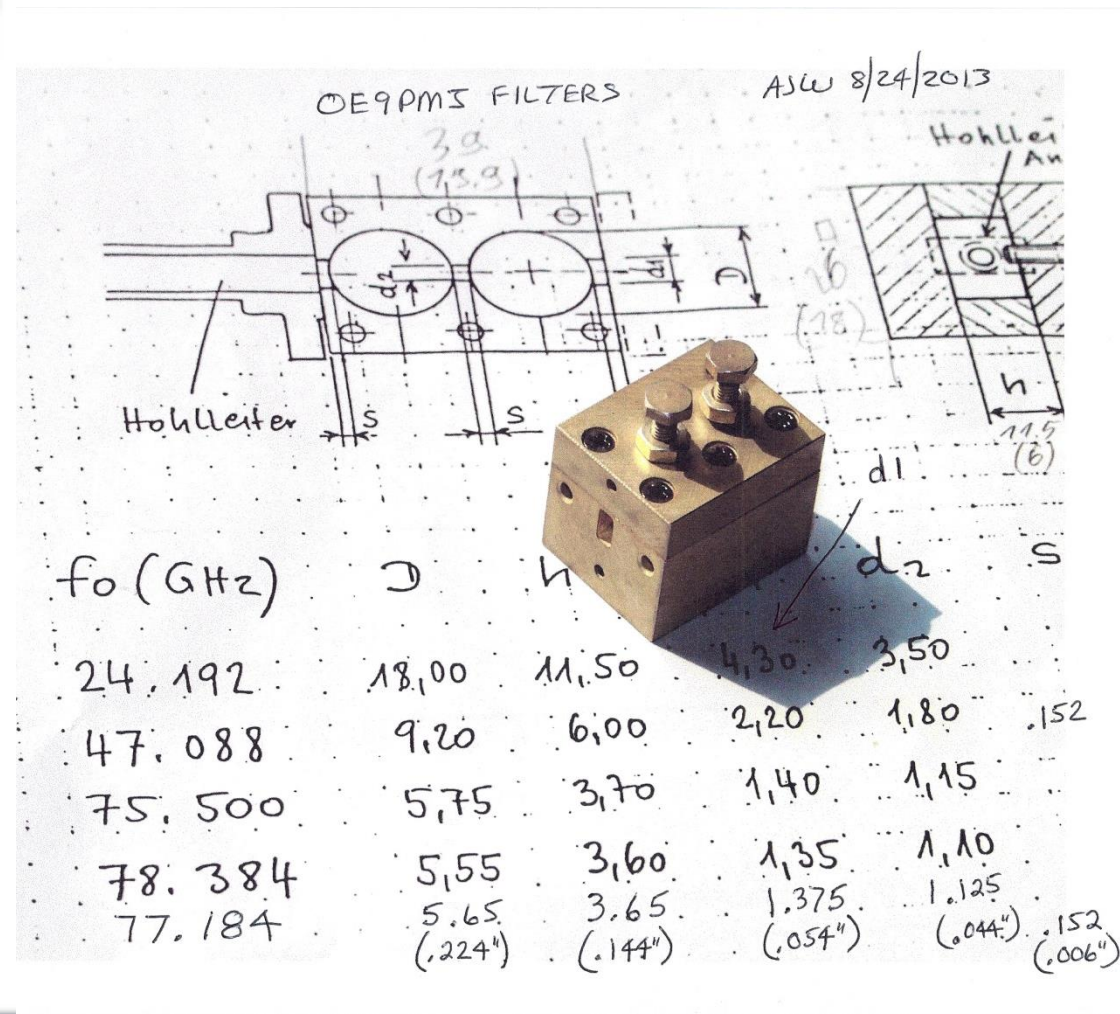 OE9PMJ FILTERS
AJW 8/24/2013
39
(13.9)
d2
d1
D
26
(18)
h
11,5
(6)
Hohlleiter
S
S
d1
fo (GHz) D h d2 S
24.192 18,00 11,50 4,30 3,50
47.088 9,20 6,00 2,20 1,80 .152
75.500 5,75 3,70 1,40 1,15
78.384 5,55 3,60 1,35 1,10
77.184 5.65 3.65 1.375 1.125 .152
(.224") (.144") (.054") (.044") (.006")